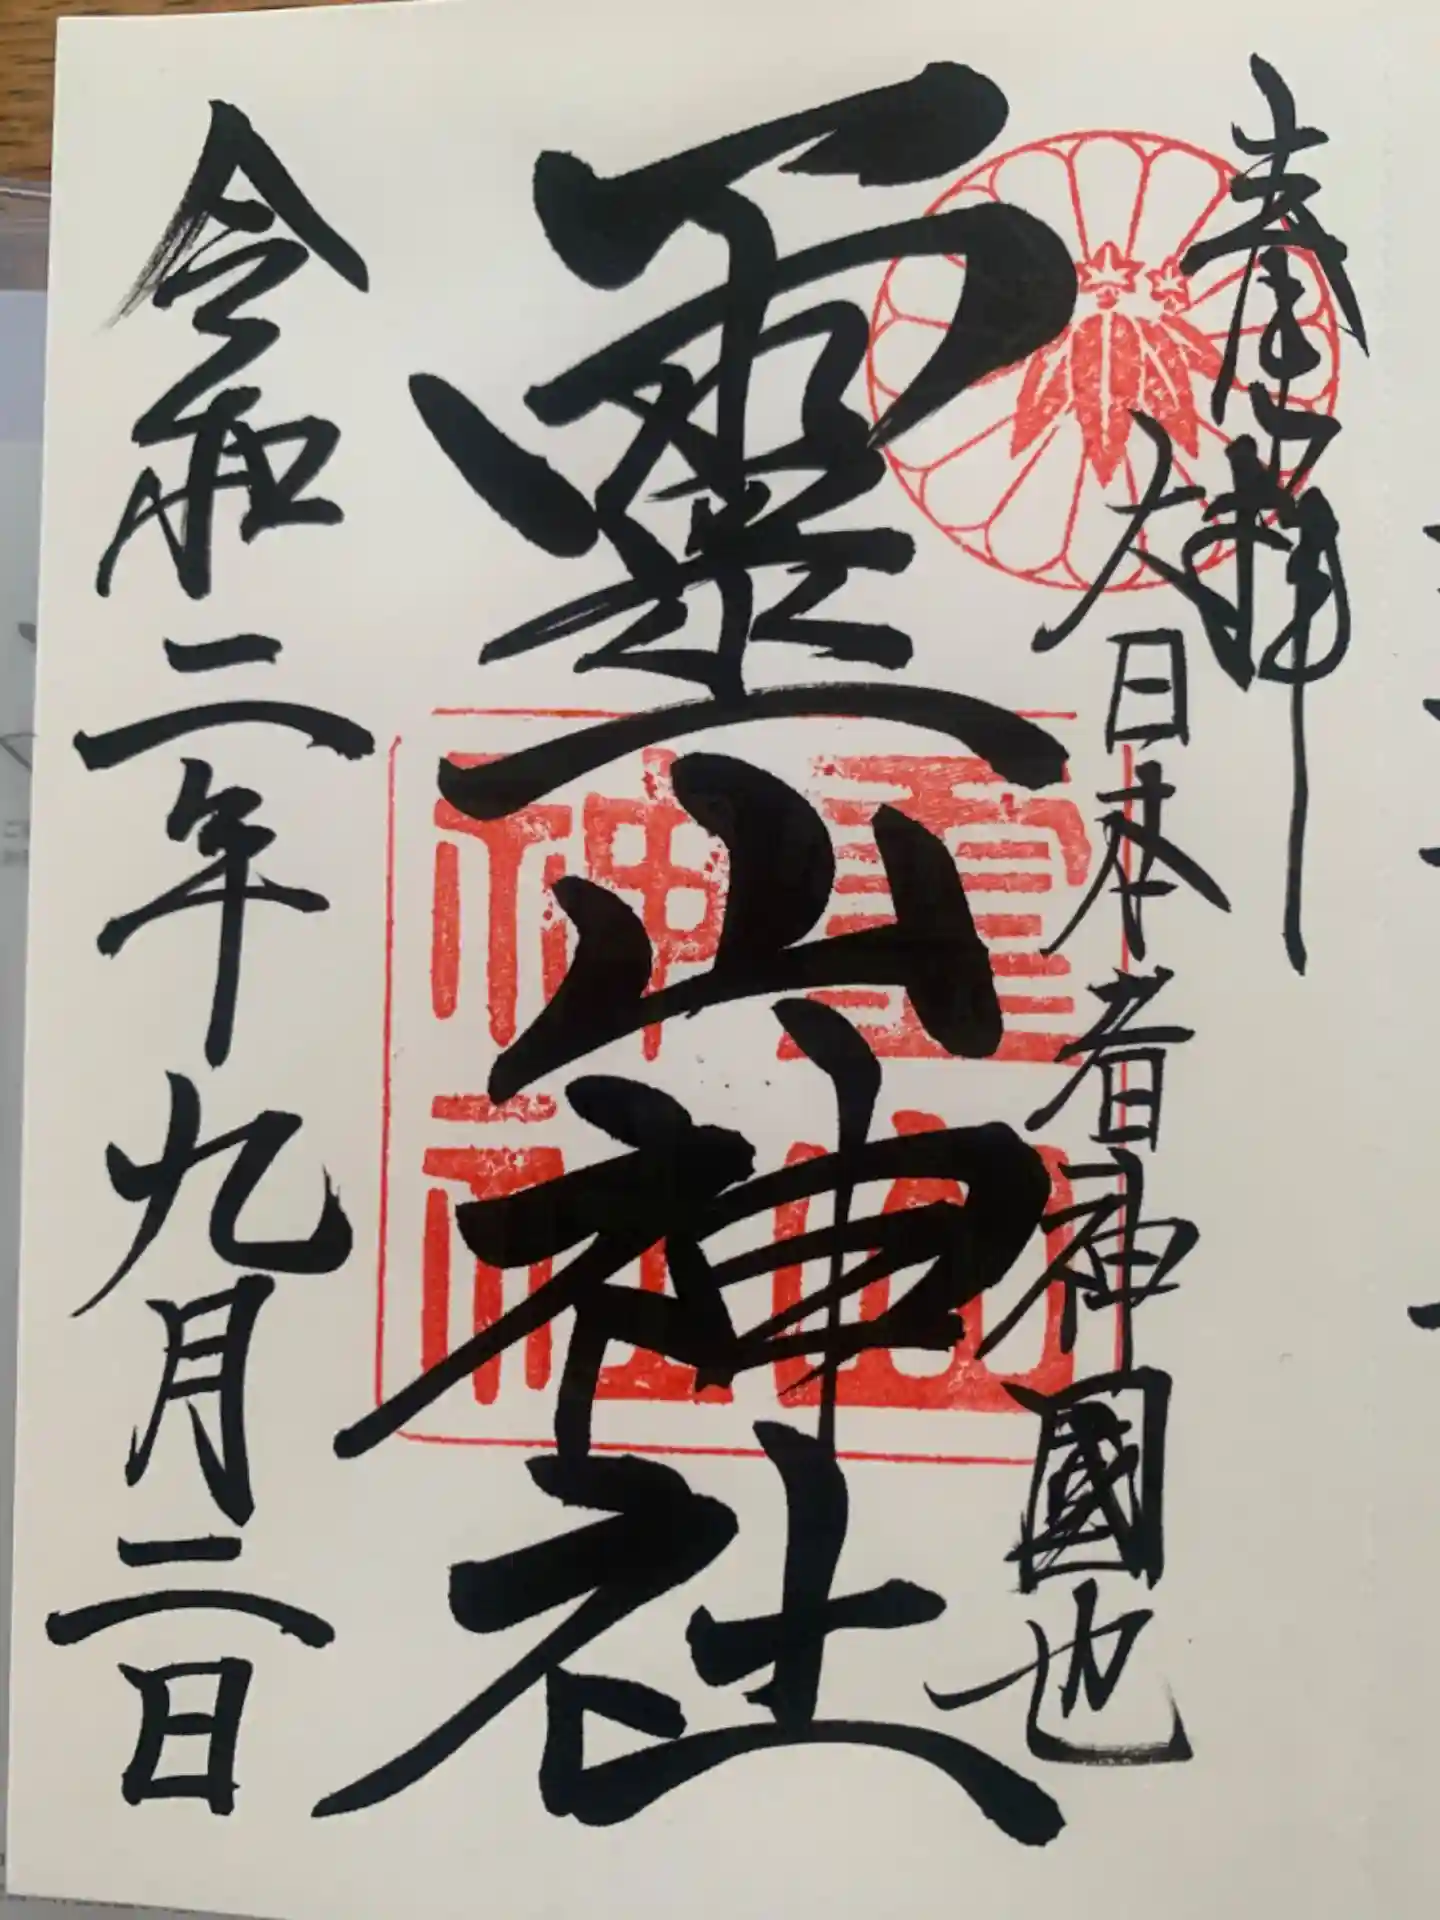 奉拝
大日本者神國也
霊山神社
霊山
神社
令和二年九月二日